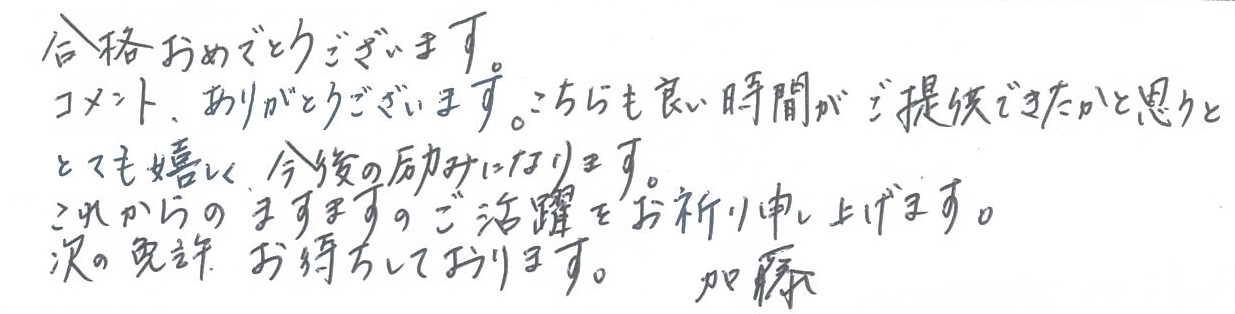 合格おめでとうございます。
コメント、ありがとうございます。こちらも良い時間がご提供できたかと思うと
とても嬉しく、今後の励みになります。
これからのますますのご活躍をお祈り申し上げます。
次の免許、お待ちしております。 加藤